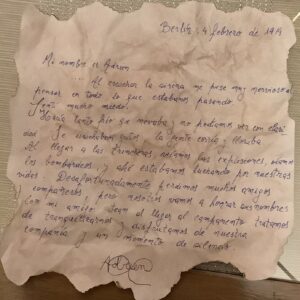 Berlin, 4 febrero de 1914
Mi nombre es Adrián
Al escuchar la sirena me puse muy nervioso al
pensar en todo lo que estabamos pasando.
Tenía mucho miedo.
Hacía tanto frío que nevaba y no podíamos ver con clari
dad. Se escuchaban gritos, la gente corría y lloraba
Al llegar a las trincheras, oíamos las explosiones
los bombardeos y ahí estabamos luchando por nuestras
vidas. Desafortunadamente perdimos muchos amigos
compañeros, pero nosotros vamos a honrar sus nombres
Con mi amigo al llegar al campamento tratamos
de tranquilizarnos y disfrutamos de nuestra
compañía y un momento de silencio.
Adrián